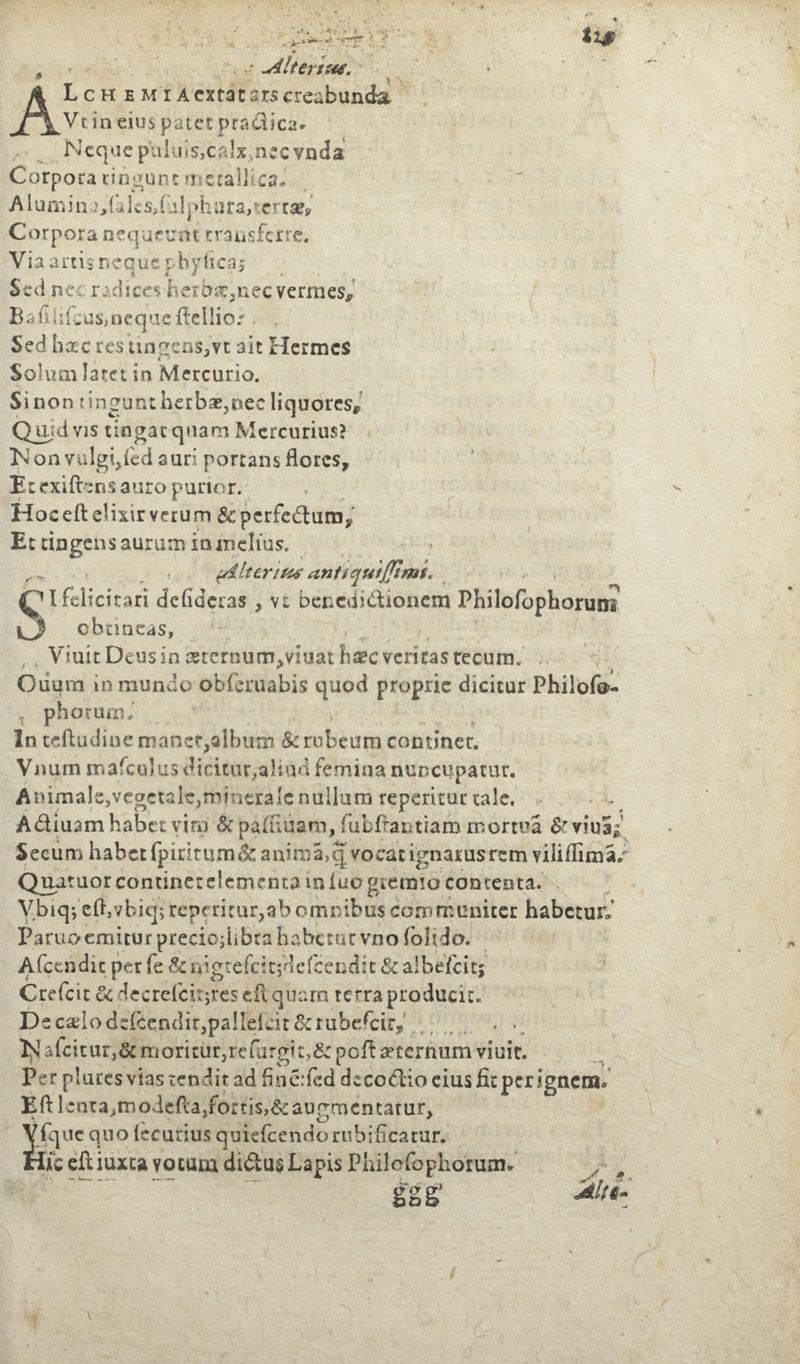 Alterius.
ALCHEMIA extat ars creabunda
Vt in eius patet practica.
Neque puluis,calx,nec vnda
Corpora tingunt metallica.
Alumina,ſales,ſulphura,terræ,
Corpora nequeunt transferre.
Via artis neque phyſica;
Sed nec radices herbæ,nec vermes,
Baſiliſcus,neque ſtellio:
Sed hæc res tingens,vt ait Hermes
Solum latet in Mercurio.
Si non tingunt herbæ,nec liquores,
Quid vis tingat quam Mercurius?
Non vulgi,ſed auri portans flores,
Et exiſtens auro purior.
Hoc eſt elixir verum & perfectum,
Et tingens aurum in melius.
Alterius antiquiſſimi.
SI felicitari deſideras , vt benedictionem Philoſophorum
obtineas,
Viuit Deus in æternum,viuat hæc veritas tecum.
Ouum in mundo obſeruabis quod proprie dicitur Philoſo-
phorum.
In teſtudine manet,album & rubeum continet.
Vnum maſculus dicitur,aliud femina nuncupatur.
Animale,vegetale,minerale nullum reperitur tale.
Actiuam habet vim & paſſiuam, ſubſtantiam mortuā & viuā;
Secum habet ſpiritum & animā,q̄ vocat ignarus rem viliſſimā.
Quatuor continet elementa in ſuo gremio contenta.
Vbiq; eſt,vbiq; reperitur,ab omnibus communiter habetur.
Paruo emitur precio;libra habetur vno ſolido.
Aſcendit per ſe & nigreſcit;deſcendit & albeſcit;
Creſcit & decreſcit;res eſt quam terra producit.
De cælo deſcendit,palleſcit & rubeſcit,
Naſcitur,& moritur,reſurgit,& poſt æternum viuit.
Per plures vias tendit ad finē:ſed decoctio eius fit per ignem.
Eſt lenta,modeſta,fortis,& augmentatur,
Vſque quo ſecurius quieſcendo rubificatur.
Hic eſt iuxta votum dictus Lapis Philoſophorum.
ggg Alte-